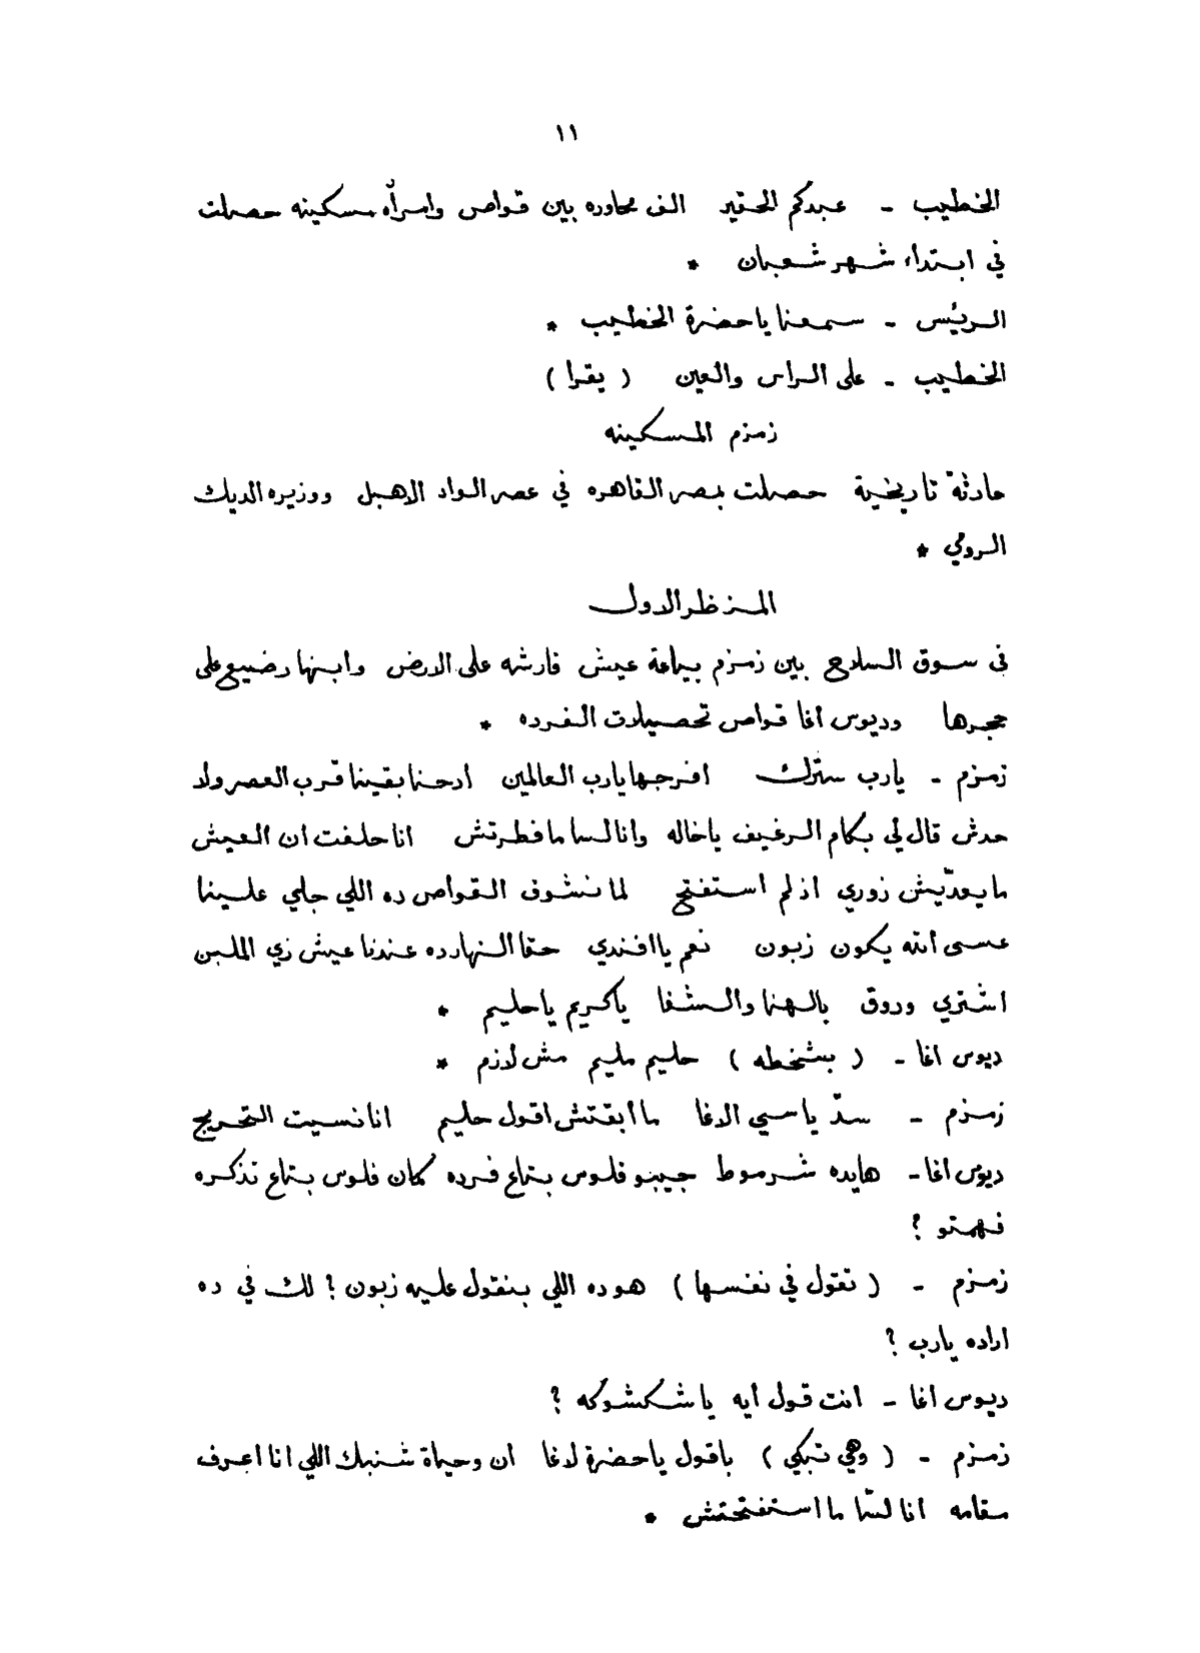 ١١
الخطيب - عبدكم الحقير الف محاوره بين قواص وامرأه مسكينه حصلت
في ابتداء شهر شعبان *
الريّس - سمعنا ياحضرة الخطيب *
الخطيب - على الراس والعين ( يقرا )
زمزم المسكينه
حادثة تاريخية حصلت بمصر القاهره في عصر الواد الاهبل ووزيره الديك
الرومي *
المنظر الاول
في سوق السلاح بين زمزم بياعة عيش فارشه على الارض وابنها رضيع على
حجرها وديوس أغا قواص تحصيلات الفرده *
زمزم - يارب سترك افرجها يارب العالمين أدحنا بقينا قرب العصر ولا
حدش قال لي بكام الرغيف ياخاله وانا لسا ما فطرتش انا حلفت ان العيش
ما يعدّيش زوري اذ لم استفتح لما نشوف القواص ده اللي جاي علينا
عسى أنه يكون زبون نعم يا افندي حقا النهارده عندنا عيش زي الملبن
اشتري وروق بالهنا والشفا ياكريم ياحليم *
ديوس اغا - ( بشخطه ) حليم مليم مش لازم *
زمزم - سدّ ياسي الاغا ما أبقتش اقول حليم انا نسيت التحريج
ديوس اغا - هايده شرموط جيبو فلوس بتاع فرده كمان فلوس بتاع تذكره
فهمتو ؟
زمزم - ( تقول في نفسها ) هو ده اللي بنقول عليه زبون ! لك في ده
اراده يارب ؟
ديوس اغا - انت قول أيه يا شكشوكه ؟
زمزم - ( وهي تبكي ) باقول ياحضرة لاغا ان وحياة شنبك اللي انا اعرف
مقامه انا لسّا ما استفتحتش *